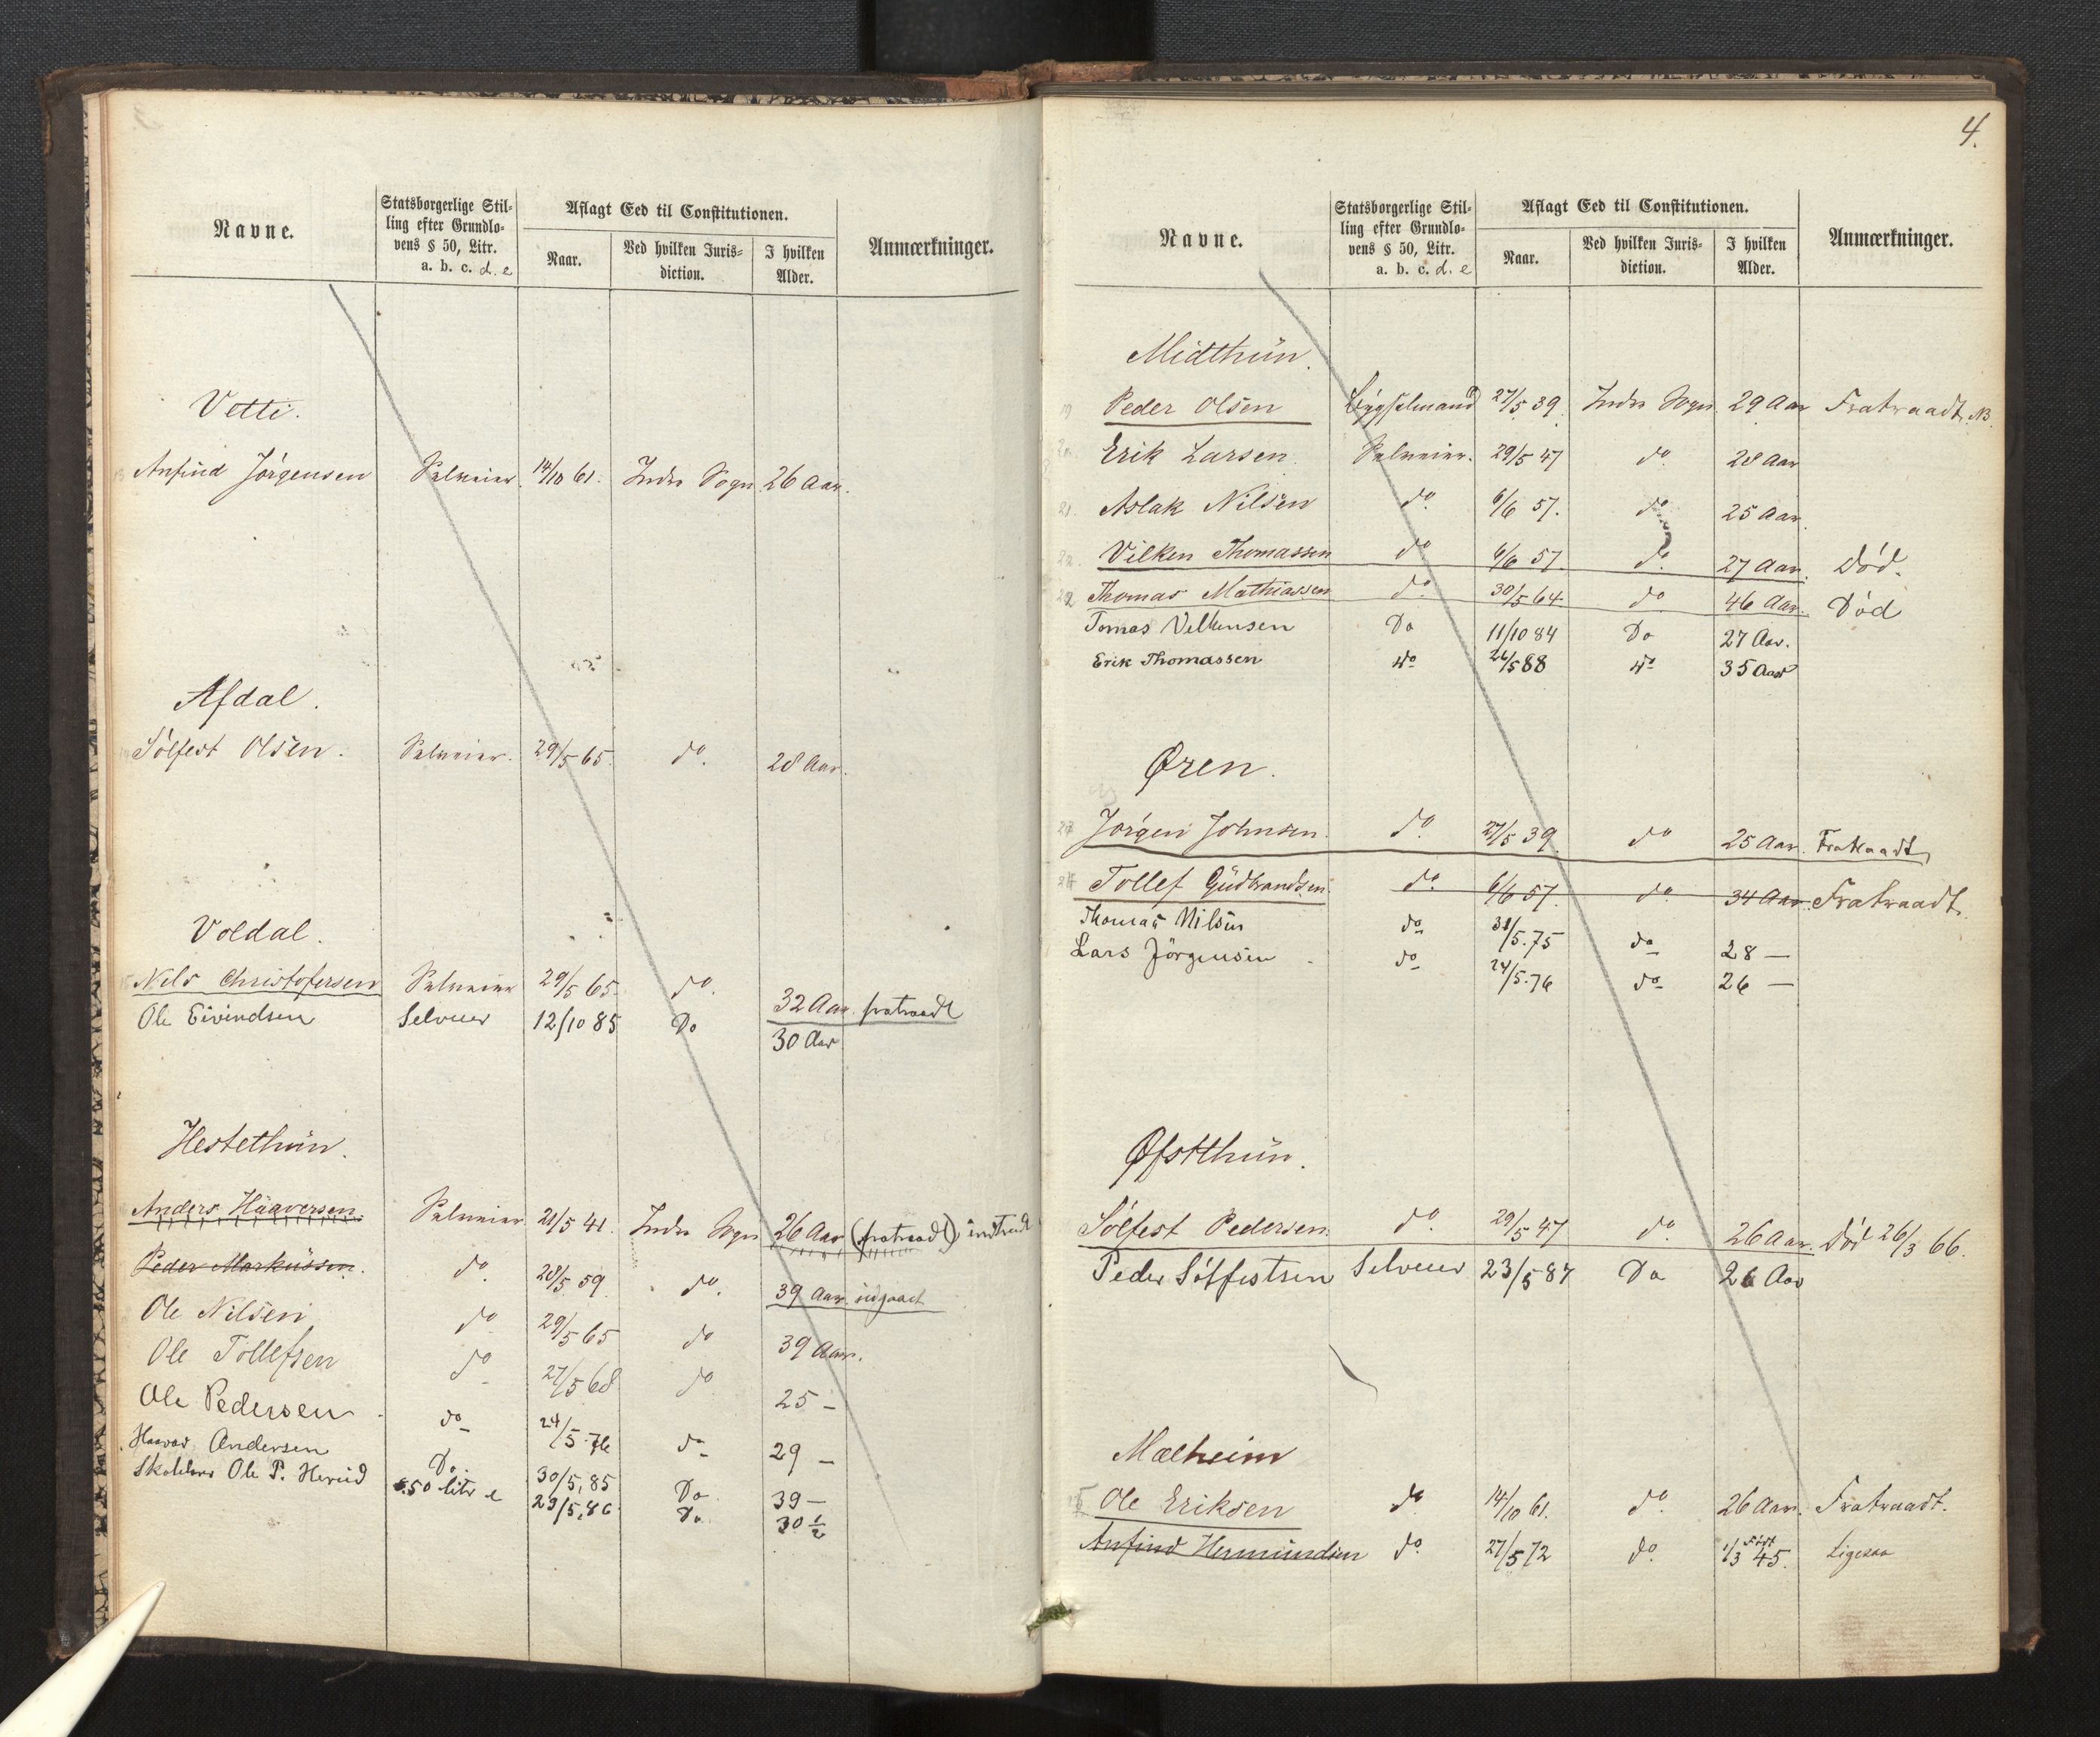 Navne.
Statsborgerlige Stil-
ling efter Grundlo-
vens § 50, Litr.
a. b. c. d. e
Aflagt Eed til Constitutionen.
Naar.
Ved hvilken Juris-
diction.
I hvilken
Alder.
Anmærkninger.
Vetti.
Anfind Jørgensen Selveier. 14/10 61. Indre Sogn 26 Aar.
Afdal.
Sølfest Olsen. Selveier. 29/5 65. do. 28 Aar.
Voldal.
Nils Christofersen Selveier 29/5 65. do. 32 Aar. fratraadt
Ole Eivindsen Selveier 12/10 85 Do 30 Aar
Hestethun.
Anders Haaversen. Selveier 21/5 41. Indre Sogn 26 Aar (fratraadt)
Peder Markussen. do. 28/5 59. do. 39 Aar. udgaaet
Ole Nilsen do 29/5 65 do 39 Aar.
Ole Tollefsen do 27/5 68 do 25 –
Ole Pedersen do 24/5. 76 do 29 –
Haavar Andersen Do. 30/5, 85 Do 39 –
Ole P. Hereid § 50 litr e 23/5, 86 Do 30 1/2
4.
Navne.
Statsborgerlige Stil-
ling efter Grundlo-
vens § 50, Litr.
a. b. c. d. e
Aflagt Eed til Constitutionen.
Naar.
Ved hvilken Juris-
diction.
I hvilken
Alder.
Anmærkninger.
Midthun.
19 Peder Olsen Bygselmand 27/5 39. Indre Sogn 29 Aar Fratraadt. NB.
20. Erik Larsen. Selveier. 29/5 47 do. 28 Aar
21. Aslak Nilsen do. 6/6 57. do 25 Aar.
22. Vilken Thomassen do 6/6 57. do. 27 Aar. Død.
22 Thomas Mathiassen do. 30/5 64. do 46 Aar. Død
Tomas Velkensen Do 11/10 84 Do 27 Aar.
Erik Thomassen do 26/5 88 do 35 Aar
Øren.
23 Jørgen Johnsen. do. 27/5 39. do 25 Aar. Fratraadt
24 Tollef Gudbrandsen. do. 6/6 57. do. 34 Aar. Fratraadt.
Thomas Nilsen do 31/5. 75 do 28 –
Lars Jörgensen do 24/5. 76 do 26 –
Øfstthun.
Sølfest Pedersen. do. 29/5 47 do. 26 Aar. Død 26/3 66.
Peder Sölfestsen Selveier 23/5 87 Do 26 Aar
Mælheim
Ole Eriksen do 14/10 61. do. 26 Aar. Fratraadt.
Anfind Hermundsen do. 27/5 72 do. Født 1/3 45. Ligesaa